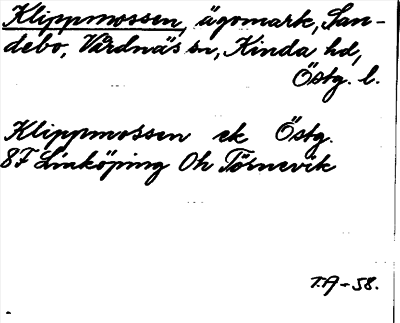 Klippmossen, ägomark, San-
debo, Vårdnäs sn, Kinda hd,
Östg. l.
Klippmossen ek Östg.
8F Linköping 0h Törnevik
T.A-58.